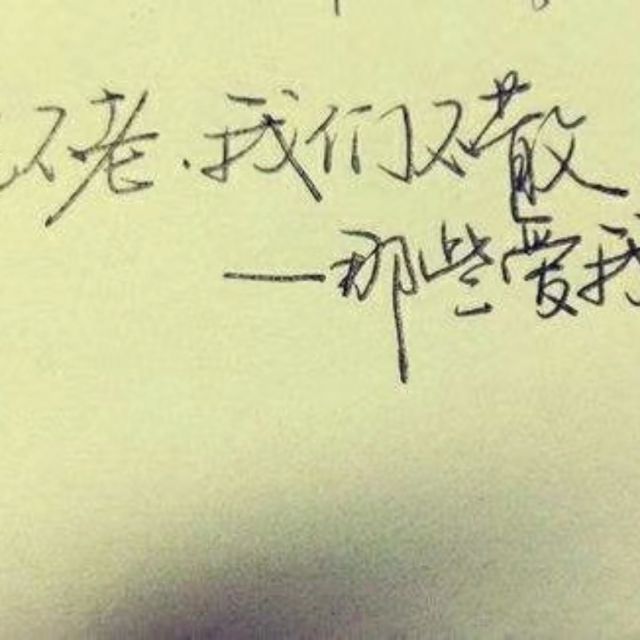 不老.我们不散
—那些爱我